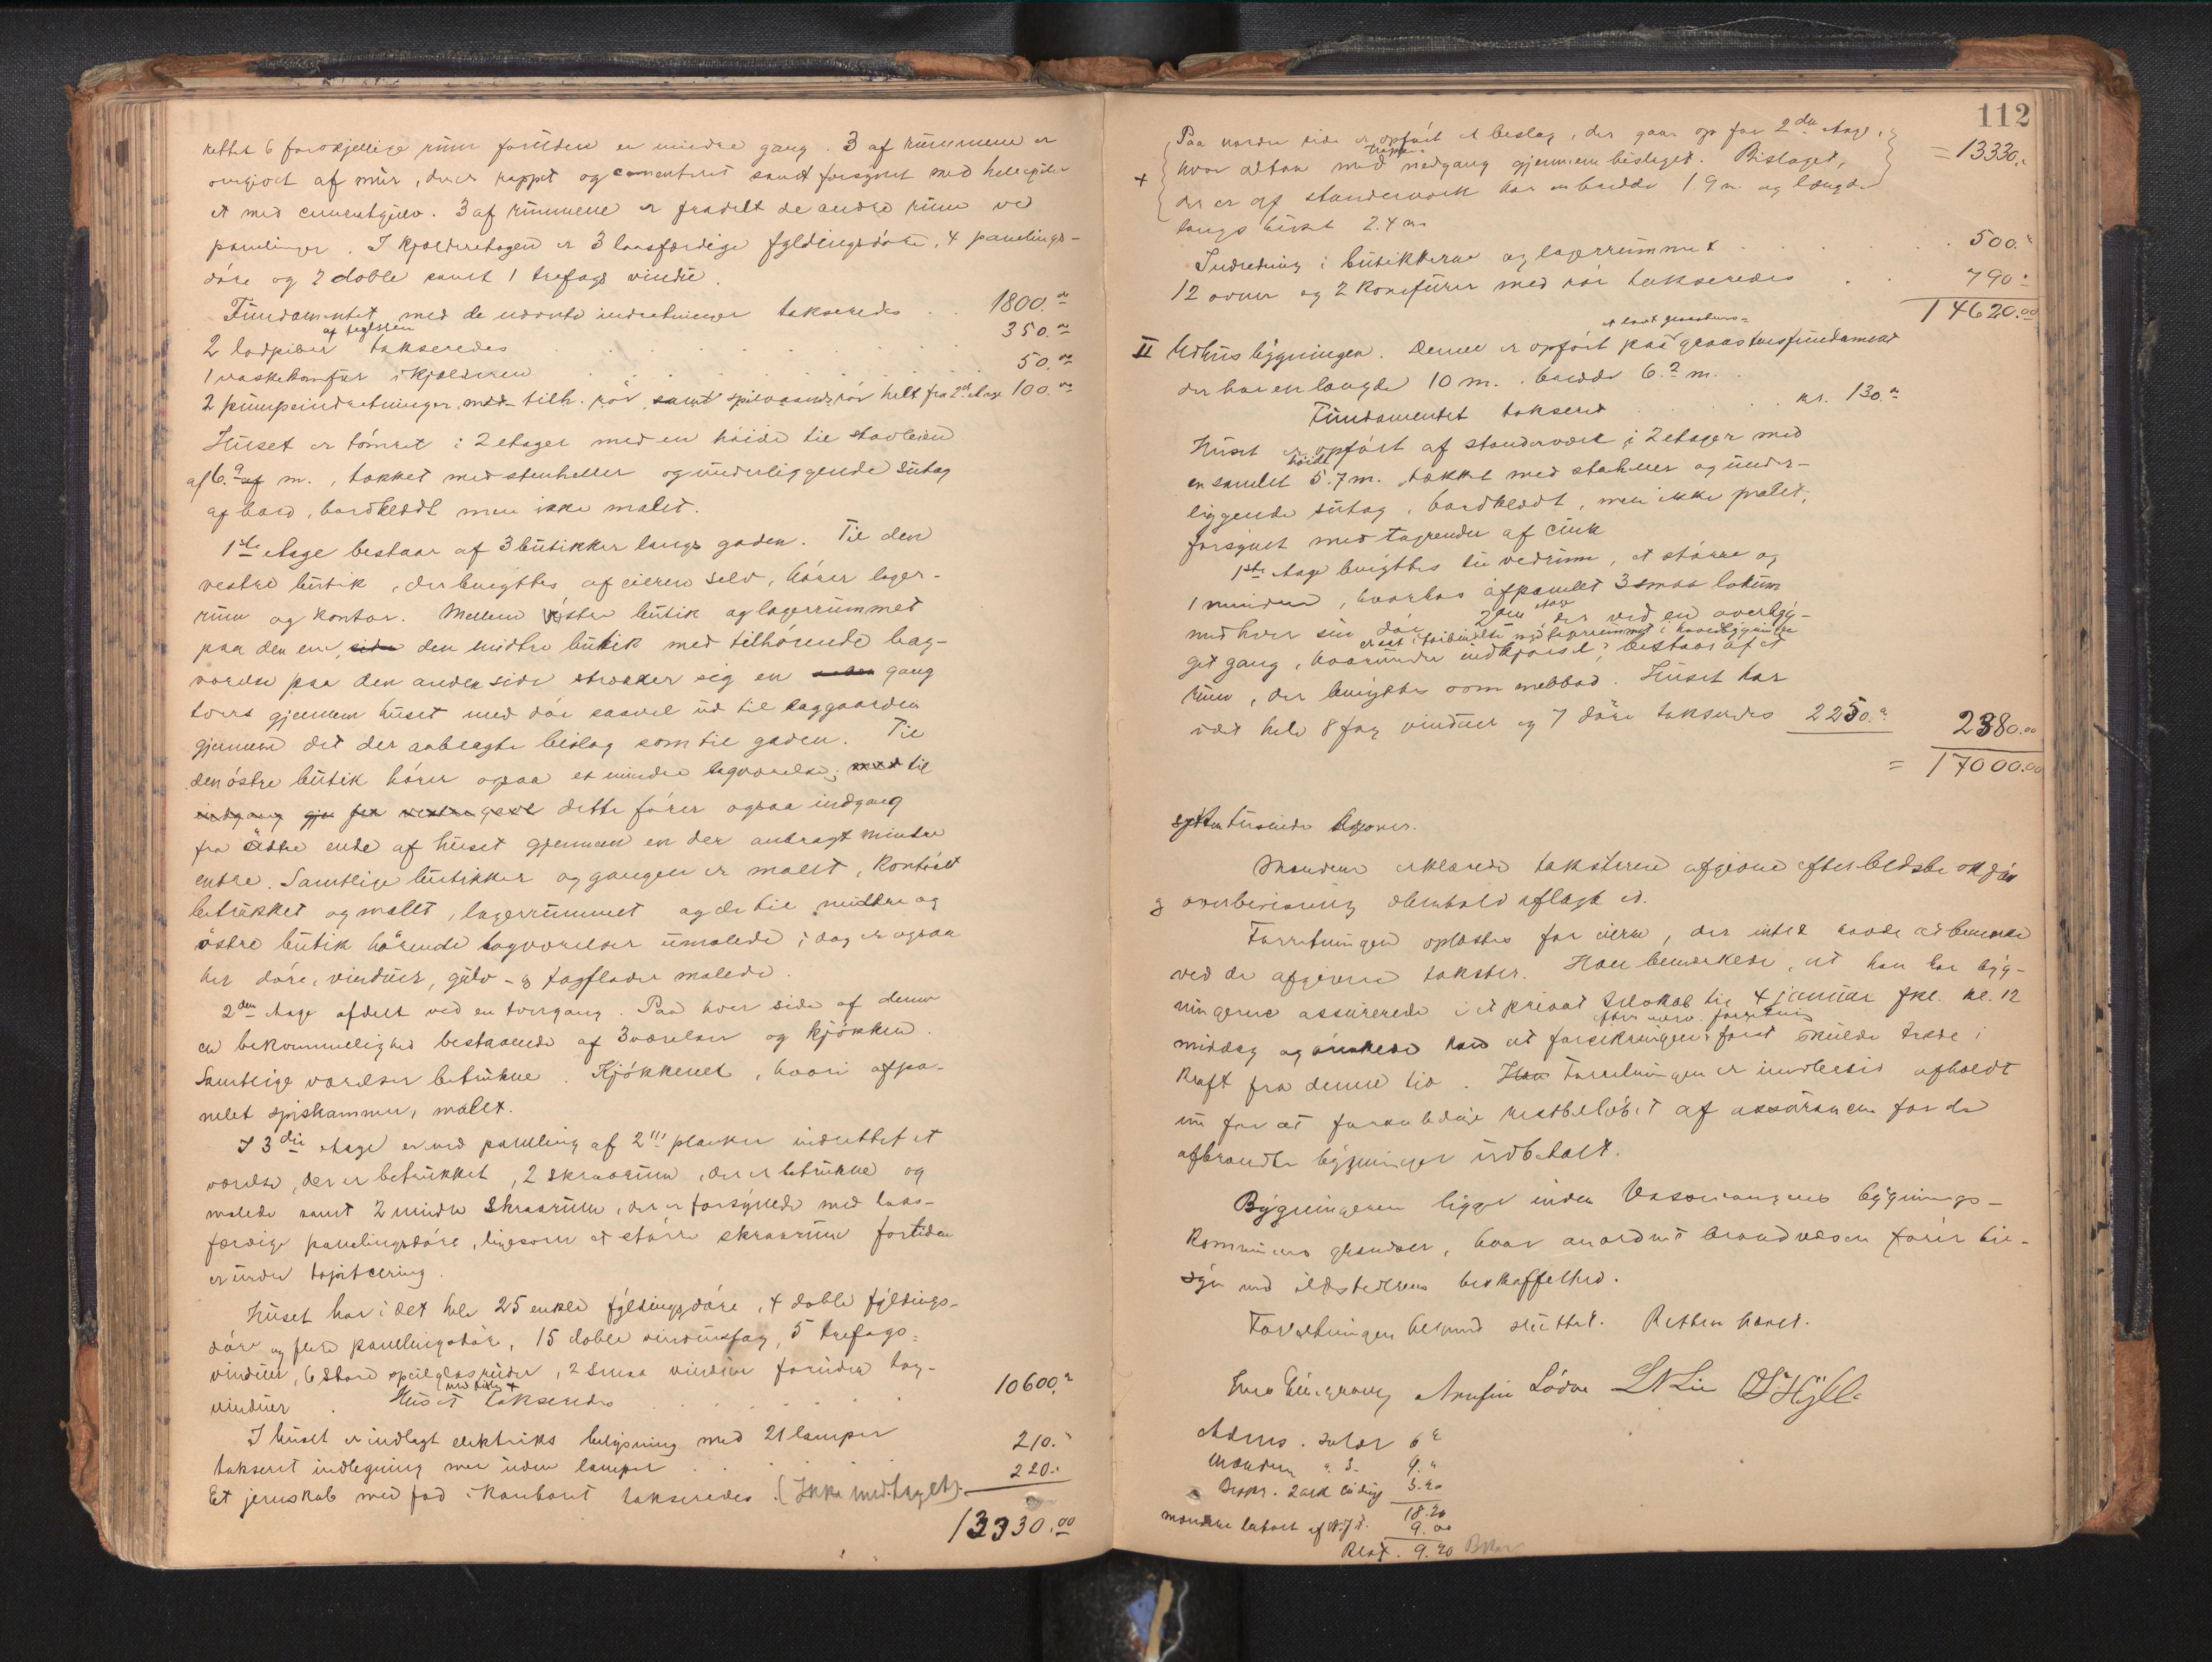 rettet 6 forskjellige rum foruden en mindre gang. 3 af rummene er
omgjort af mur, der er rappet og cementeret samt forsynet med
et med cementgulv. 3 af rummene er fradelt de andre rum ved
panelinger. I kjælderetagen er 3 laasfærdige fyldingsdøre, 4 panelings-
døre og 2 doble samt 1 trefags vindu.
Fundamentet med de nævnte indretninger takseredes . . 1800.00
2 lodpiber af teglsten takseredes . . . 350.00
1 vaskekomfur i kjælderen . . . 50.00
2 pumpeindretninger med tilh. rør samt spilvandsrør helt fra 2den etage 100.00
Huset er tømret i 2 etager med en høide til stavleien
af 6.9 m., tækket med stenheller og underliggende sutag
af bord, bordklædt men ikke malet.
1ste etage bestaar af 3 butikker langs gaden. Til den
vestre butik, der benyttes af eieren selv, hører lager-
rum og kontor. Mellem østre butik og lagerrummet
paa den ene, side den midtre butik med tilhørende bag-
værelse paa den anden side strækker sig en gang
tvers gjennem huset med dør saavel ud til baggaarden
gjennem det der anbragte bislag som til gaden. Til
den østre butik hører ogsaa et mindre bagværelse; til
indgang gjen fra vestre gavl dette fører ogsaa indgang
fra østre ende af huset gjennem en der anbragt mindre
entre. Samtlige butikker og gangen er malet, kontoret
betrukket og malet, lagerrummet og de til midtre og
østre butik hørende bagværelser umalede; dog er ogsaa
her døre, vinduer, gulv- og tagflader malede.
2den etage afdelt ved en tvergang. Paa hver side af denne
en bekvemmelighed bestaaende af 3 værelser og kjøkken.
Samtlige værelser betrukne. Kjøkkenet, hvori afpa-
nelet spiskammer, malet.
I 3die etage er ved paneling af 2''' planker indrettet et
værelse, der er betrukket, 2 skraarum, der er betrukne og
malede samt 2 mindre skraarum, der er forsynede med laas-
færdige panelingsdøre, ligesom et større skraarum fortiden
er under tapitsering.
Huset har i det hele 25 enkle fyldingsdøre, 4 doble fyldings-
døre og flere panelingsdøre, 15 doble vindusfag, 5 trefags-
vinduer, 6 store speilglasruder, 2 smaa vinduer foruden tag-
vinduer. Huset med bislag + takseredes . . . 10600.
I huset er indlagt elektriks belysning med 21 lamper
takseret indlegning men uden lamper . . 210.
Et jernskab med fod i kontoret takseredes. (Ikke medtaget). 220.
13330.00
112
Paa nordre side er opført et bislag, der gaar op for 2den etage,
+ hvor altan med trappe nedgang gjennem bislaget. Bislaget, = 13330.
der er af stenderværk har en bredde 1.9 m. og længde
langs huset 2.4 m
Indredning i butikkerne og lagerrummet . . . 500.
12 ovner og 2 komfurer med rør takseredes . . 790.
14620.00
II Udhusbygningen. Denne er opført paa et lavt graastensfundament
der har en længde 10 m. bredde 6.2 m.
Fundamentet takseret . . . kr. 130.
Huset er opført af stenderværk i 2 etager med
en samlet høide 5.7 m. tækket med stenheller og under-
liggende sutag, bordklædt, men ikke malet,
forsynet med tagrender af cink
1ste etage benyttes til vedrum, et større og
1 mindre, hvorhos afpanelet 3 smaa lokum
med hver sin dør. 2den etage der ved en overbyg-
get gang, hvorunder indkjørsel, er sat i forbindelse med lagerrummet i hovedbygningen bestaar af et
rum, der benyttes som melbod. Huset har
i det hele 8 fag vinduer og 7 døre takseredes 2250. 2380.00
= 17000.00
sytten tusinde kroner.
Mændene erklærede taksterne afgivne efter bedste skjøn
og overbevisning i henhold til aflagt ed.
Forretningen oplæstes for eieren, der intet havde at bemerke
ved de afgivne takster. Han bemærkede, at han har byg-
ningerne assurerede i et privat selskab til 4 januar fkl. kl. 12
middag og ønskede at forsikringen efter nærv. forretning først skulde træde i
kraft fra denne tid. Han Forretningen er imidlertid afholdt
nu for at faa restbeløbet af assurancen for de
afbrændte bygninger udbetalt.
Bygningerne ligger inden Vossevangens bygnings-
kommunes grændser, hvor anordnet brandvæsen fører til-
syn med ildstedernes beskaffenhed.
Forretningen hermed sluttet. Retten hævet.
Arnfin Lødve L N Lie
Adms. salær 6
mændene a 3. 9.
3.20
18.20
9.00
Rest. 9.20